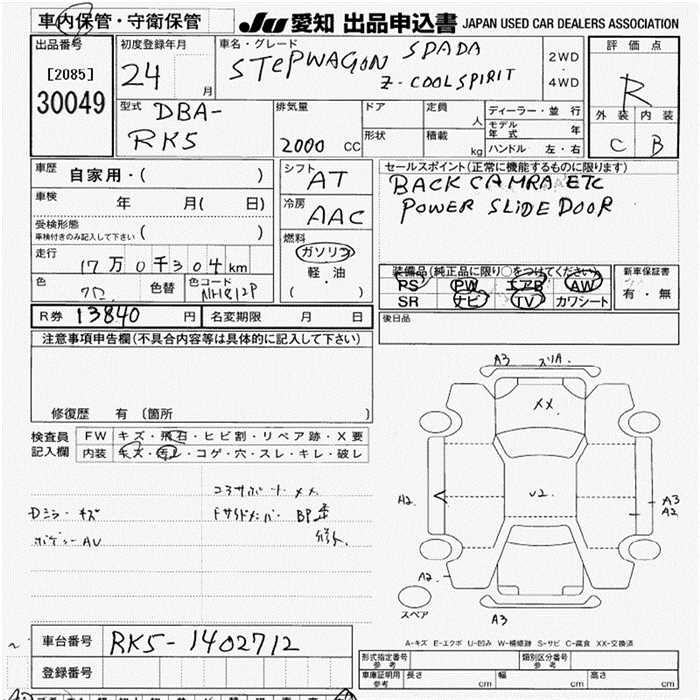 車内保管・守衛保管
JU 愛知 出品申込書 JAPAN USED CAR DEALERS ASSOCIATION
出品番号
[2085]
30049
初度登録年月
24 月
車名・グレード
STEPWAGON SPADA
Z-COOLSPIRIT
2WD
・
4WD
評価点
R
外装 内装
C B
型式
DBA-
RK5
排気量
2000 CC
ドア
形状
定員
人
積載
kg
ディーラー・並行
モデル年式 年
ハンドル 左・右
車歴
自家用・( )
車検
年 月( 日)
受検形態
車検付きのみ記入して下さい ( )
走行
17万0千304km
色
色替
色コード
NH812P
シフト
AT
冷房
AAC
燃料
ガソリン
軽・油
( )
セールスポイント(正常に機能するものに限ります)
BACK CAMRA ETC
POWER SLIDE DOOR
装備品(純正品に限り○をつけてください)
PS PW エアB AW
SR ナビ TV カワシート
新車保証書
有・無
R券 13840 円
名変期限 月 日
後日品
注意事項申告欄(不具合内容等は具体的に記入して下さい)
修復歴 有〔箇所 〕
検査員
記入欄
FW キズ・飛石・ヒビ割・リペア跡・X要
内装 キズ・汚レ・コゲ・穴・スレ・キレ・破レ
コアサポート XX
Dミラーキズ
FサイドメンバーBP歪
修.
ボディーAU
A3 スリA
XX
A2
U2
A3
A2
A2
スペア
A3
A-キズ E-エクボ U-凹み W-補修跡 S-サビ C-腐食 XX-交換済
車台番号 RK5-1402712
登録番号
形式指定番号
参考
類別区分番号
参考
車庫証明用
参考
長さ cm
幅 cm
高さ cm